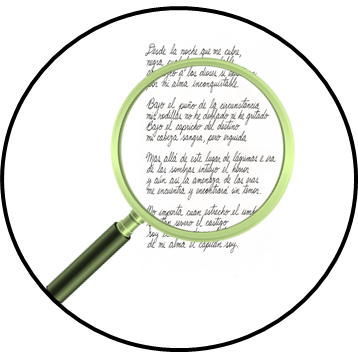 Desde la noche que me cubre,
negra
a los dioses si
mi alma inconquistable.
Bajo el puño de la circunstancia
mis rodillas no he doblado ni he gritado
Bajo el capricho del destino
mi cabeza sangra, pero erguida
Mas allá de este lugar de lágrimas e ira
de las sombras intuyo el
y aún así la amenaza de los
me encuentra y encontrará sin temor.
No importa cuan estrecho el
severo el castigo
Soy
de mi alma el capitán soy.